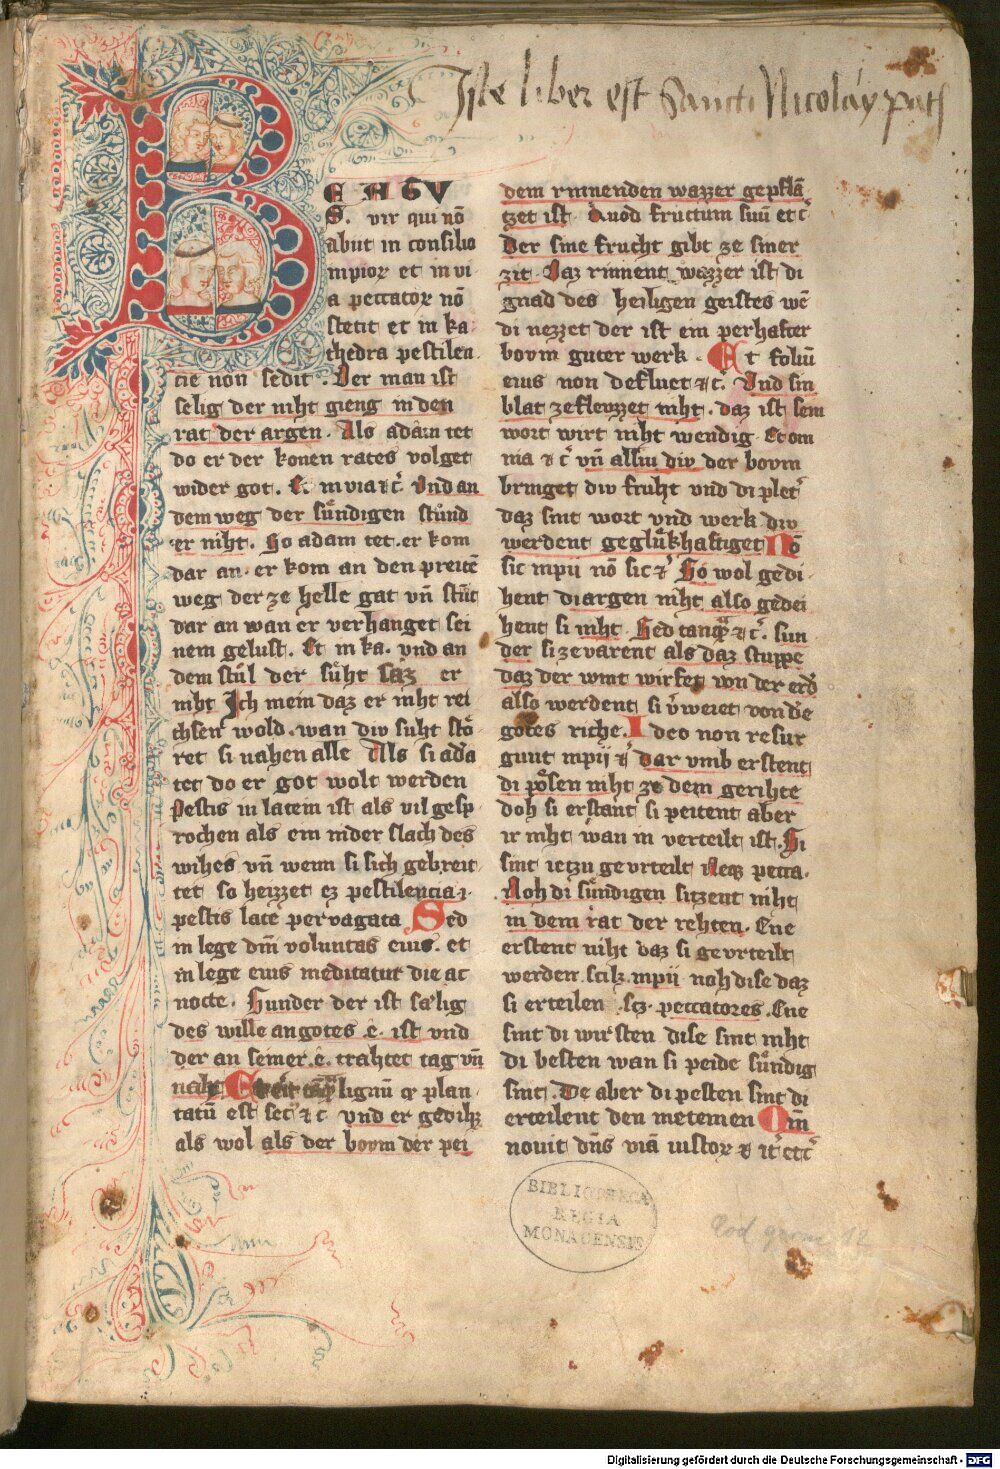 Iste liber est Sancti Nicolay
BEATV
S. vir qui nō
abiit in consilio
impioꝛ et in vi
a peccatoꝛ nō
stetit et in ka
thedra pestilen
cie non sedit . Der man ist
selig der niht gieng in den
rat der argen . Als adam tet
do er der konen rates volget
wider got . Et in via ⁊ c̄ . Vnd an
dem weg der sündigen stůnd
er niht . So adam tet . er kom
dar an . er kom an den preitē
weg der ze helle gat vn̄ stūt
dar an wan er verhanget sei
nem gelust . Et in ka . vnd an
dem stůl der sůht saz er
niht Ich mein daz er niht rei
chsen wold . wan div suht stö
ret si nahen alle Als si adā
tet do er got wolt werden
Pestis in latein ist als vil gesp
rochen als ein nider slach des
vihes vn̄ wenn si sich gebreit
tet so heizzet ez pestilencia .i.
pestis late pervagata Sed
in lege dn̄i voluntas eius . et
in lege eius meditatur die ac
nocte . Sunder der ist sælig
des wille an gotes . e . ist vnd
der an seiner . e . trahtet tag vn̄
naht Et erit lignū qͥ plan
tatū est sec̄ ⁊ c vnd er gedihet
als wol als der bovm der pei
dem rinnenden wazzer gepflā
tzet ist . Quod fructum suū et c̄
Der sine frucht gibt ze siner
zit . Daz rinnent wazzer ist di
gnad des heiligen geistes wē
di nezzet der ist ein perhafter
bovm guter werk . Et foliū
eius non defluet ⁊ c̄ . Vnd sin
blat zeflevzzet niht . daz ist sein
wort wirt niht wendig . Et om
nia ⁊ c̄ vn̄ alliu div der bovm
bringet div fruht vnd di plet̄
daz sint wort vnd werk div
werdent geglůkhaftiget Nō
sic impii nō sic ⁊ c̄ So wol gedi
hent di argen niht also gedei
hent si niht . Sed tanq̄ ⁊ c̄ . sun
der si zevarent als daz stuppe
daz der wint wirfet von der erd̄
also werdent si v̄weiet von d̄e
gotes riche . Ideo non resur
gunt impii ⁊ c̄ dar vmb erstent
di pösen niht ze dem gerihte
doh si erstant si peitent aber
ir niht wan in verteilt ist . Si
sint ietzu gevrteilt Neqꝫ pecca .
Noh di sündigen sitzent niht
in dem rat der rehten . Ene
erstent niht daz si gevrteilt
werden . scilꝫ . impii noh dise daz
si erteilen . sꝫ . peccatores . Ene
sint di wirsten dise sint niht
di besten wan si peide sündig
sint . De aber di pesten sint di
erteilent den meteinen Qm̄
novit dn̄s viā iustoꝛ ⁊ it̄
BIBLIOTHECA
REGIA
MONACENSIS
Cod germ 12
Digitalisierung gefördert durch die Deutsche Forschungsgemeinschaft - DFG